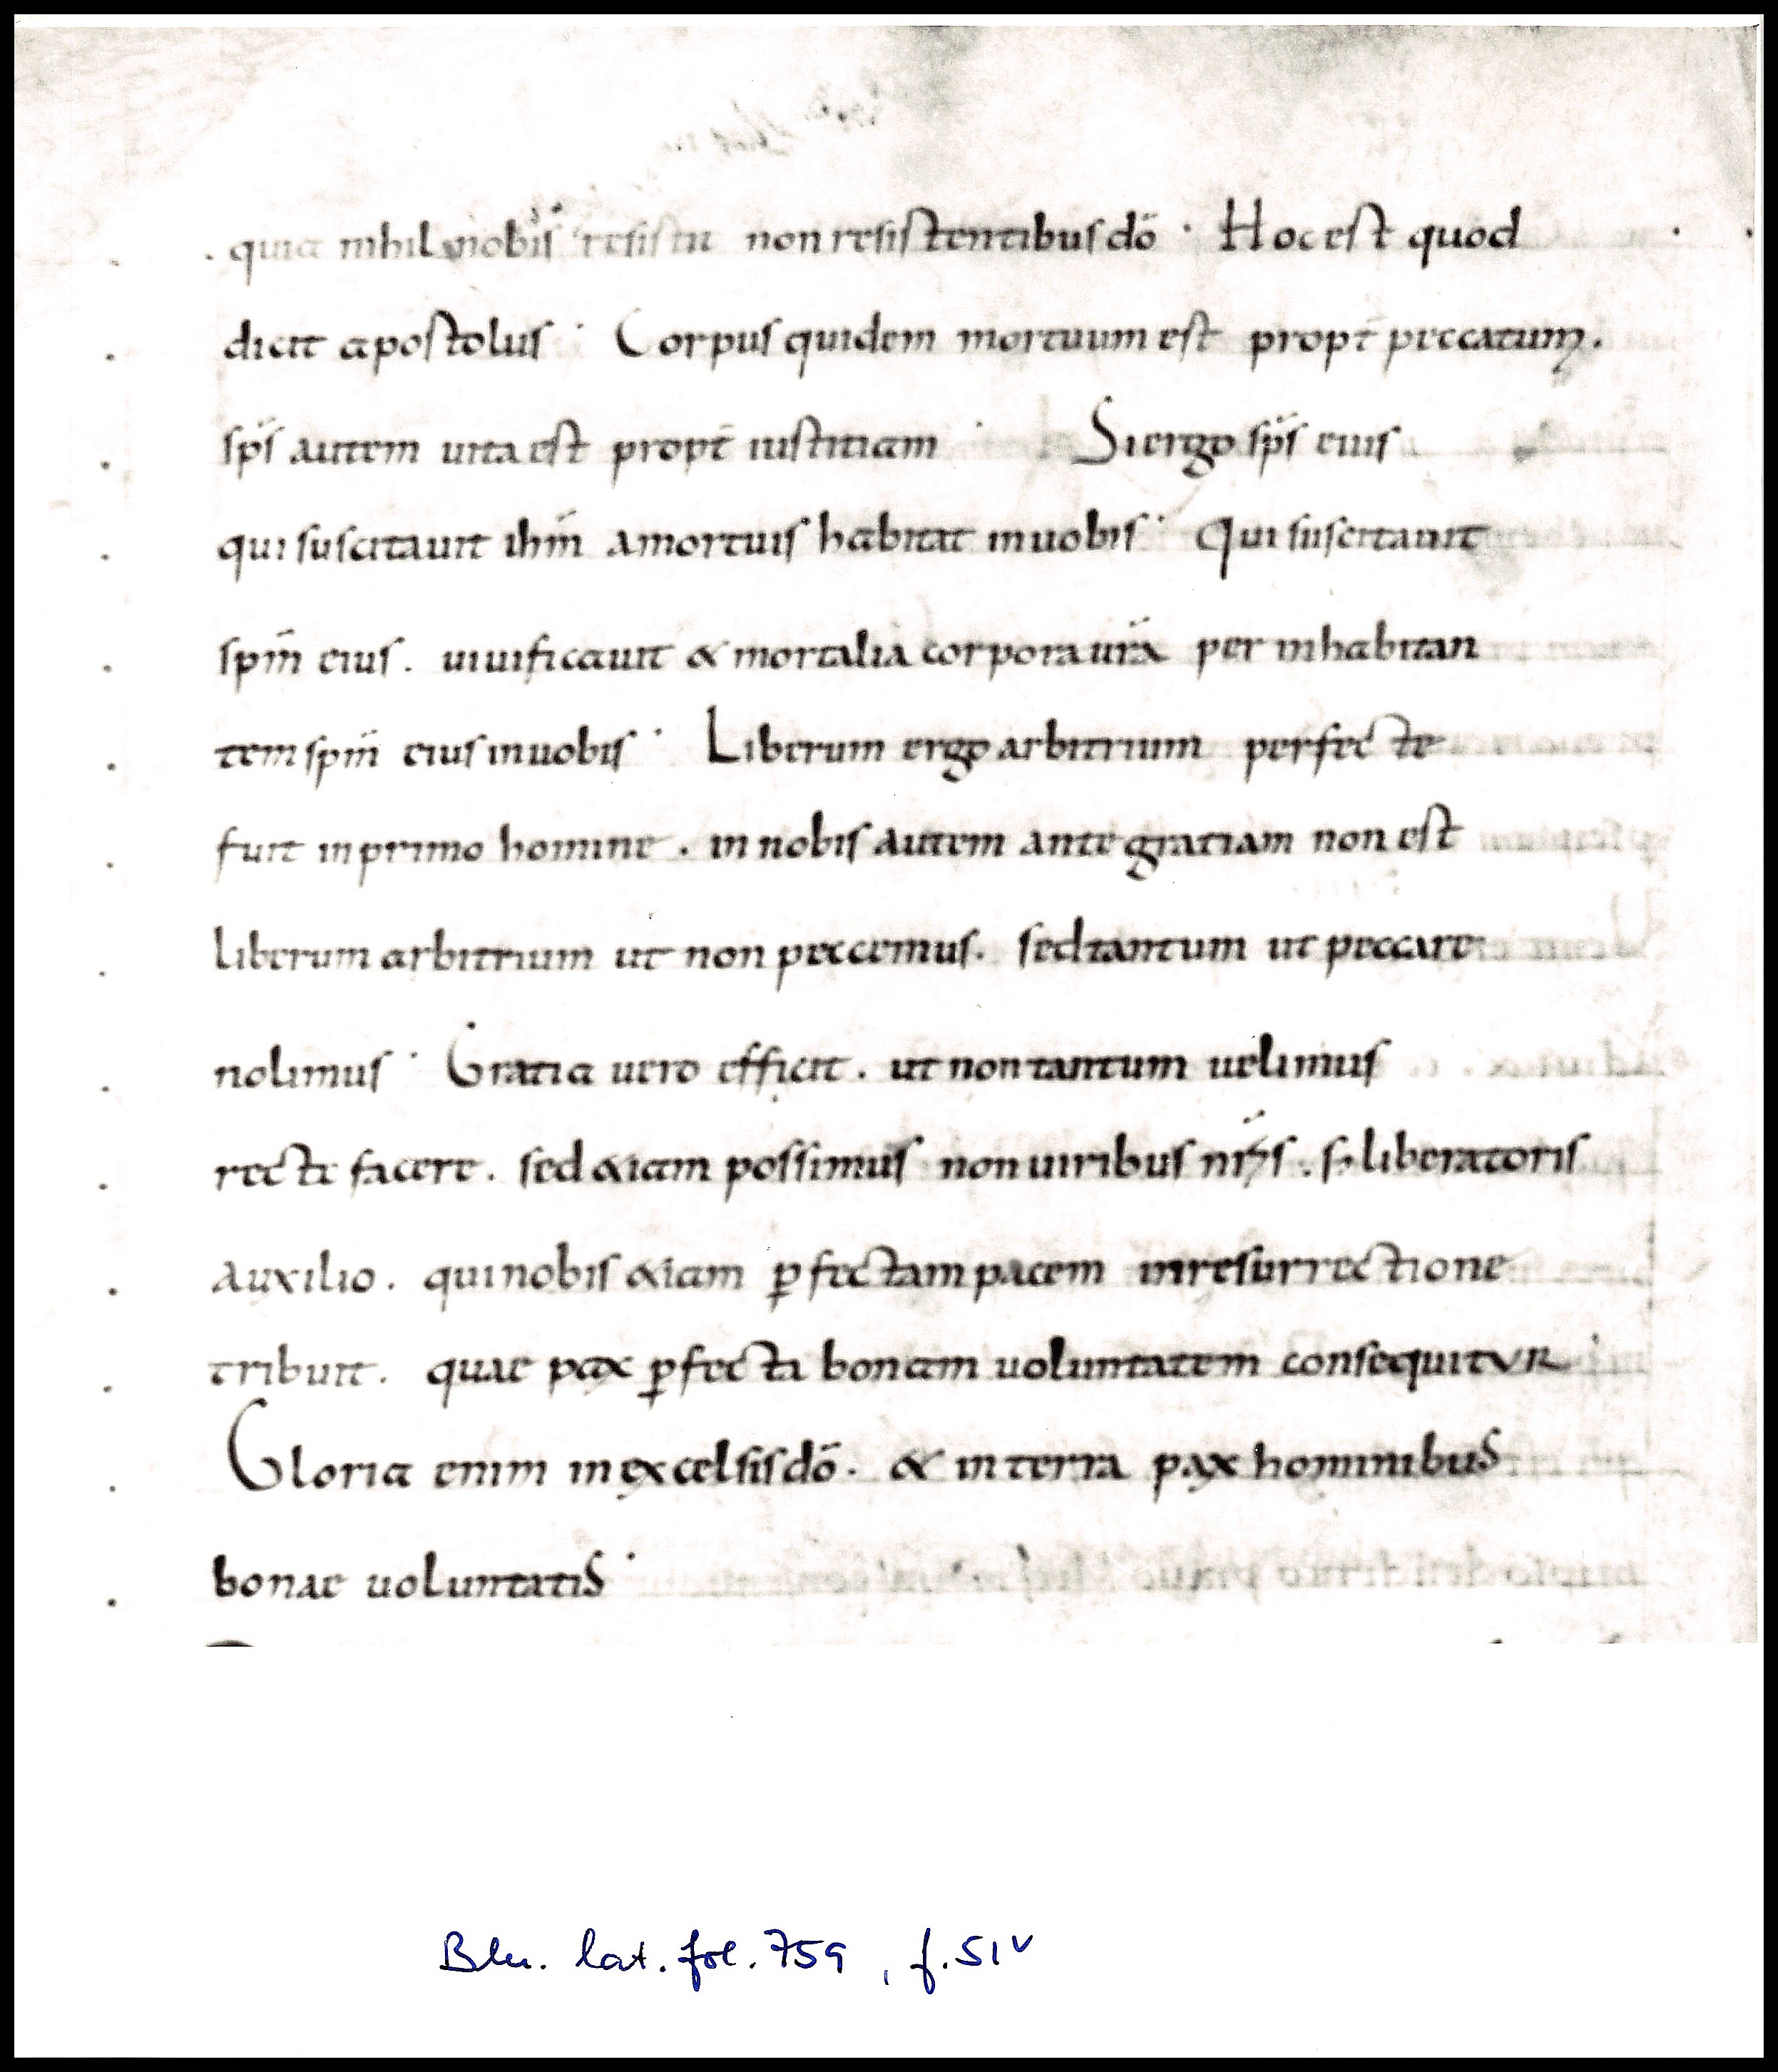 quia nihil nobis̄ resistit non resistentibus dō · Hoc est quod
dicit apostolus · Corpus quidem mortuum est propt̄ peccatum.
sp̄s autem uita est propt̄ iustitiam · Si ergo sp̄s eius
qui suscitauit ih̄m a mortuis habitat in uobis · Qui suscitauit
sp̄m eius . uiuificauit & mortalia corpora ur̄a per inhabitan
tem sp̄m eius in uobis · Liberum ergo arbitrium perfecte
fuit in primo homine . in nobis autem ante gratiam non est
liberum arbitrium ut non peccemus . sed tantum ut peccare
nolimus · Gratia uero efficit . ut non tantum uelimus
recte facere . sed &iam possimus non uiribus nr̄is . s; liberatoris
auxilio . qui nobis &iam ꝑfectam pacem in resurrectione
tribuit . quae pax ꝑfecta bonam uoluntatem consequitur
Gloria enim in excelsis dō . & in terra pax hominibus
bonae uoluntatis ·
Bln. lat. fol. 759, f. 51v